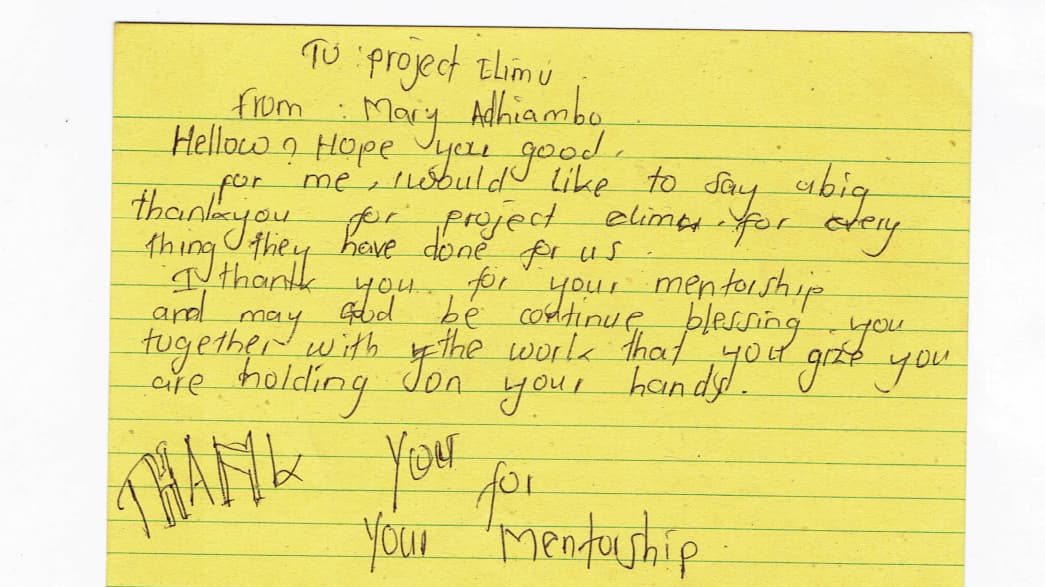 To : project Elimu
From : Mary Adhiambo
Hellow ? Hope you good.
for me, I would like to say abig
thankyou for project elimu. for every
thing they have done for us.
I thank you for your mentorship
and may God be continue blessing you
together with the work that you you
are holding on your hands.
THANK You for
Your Mentorship